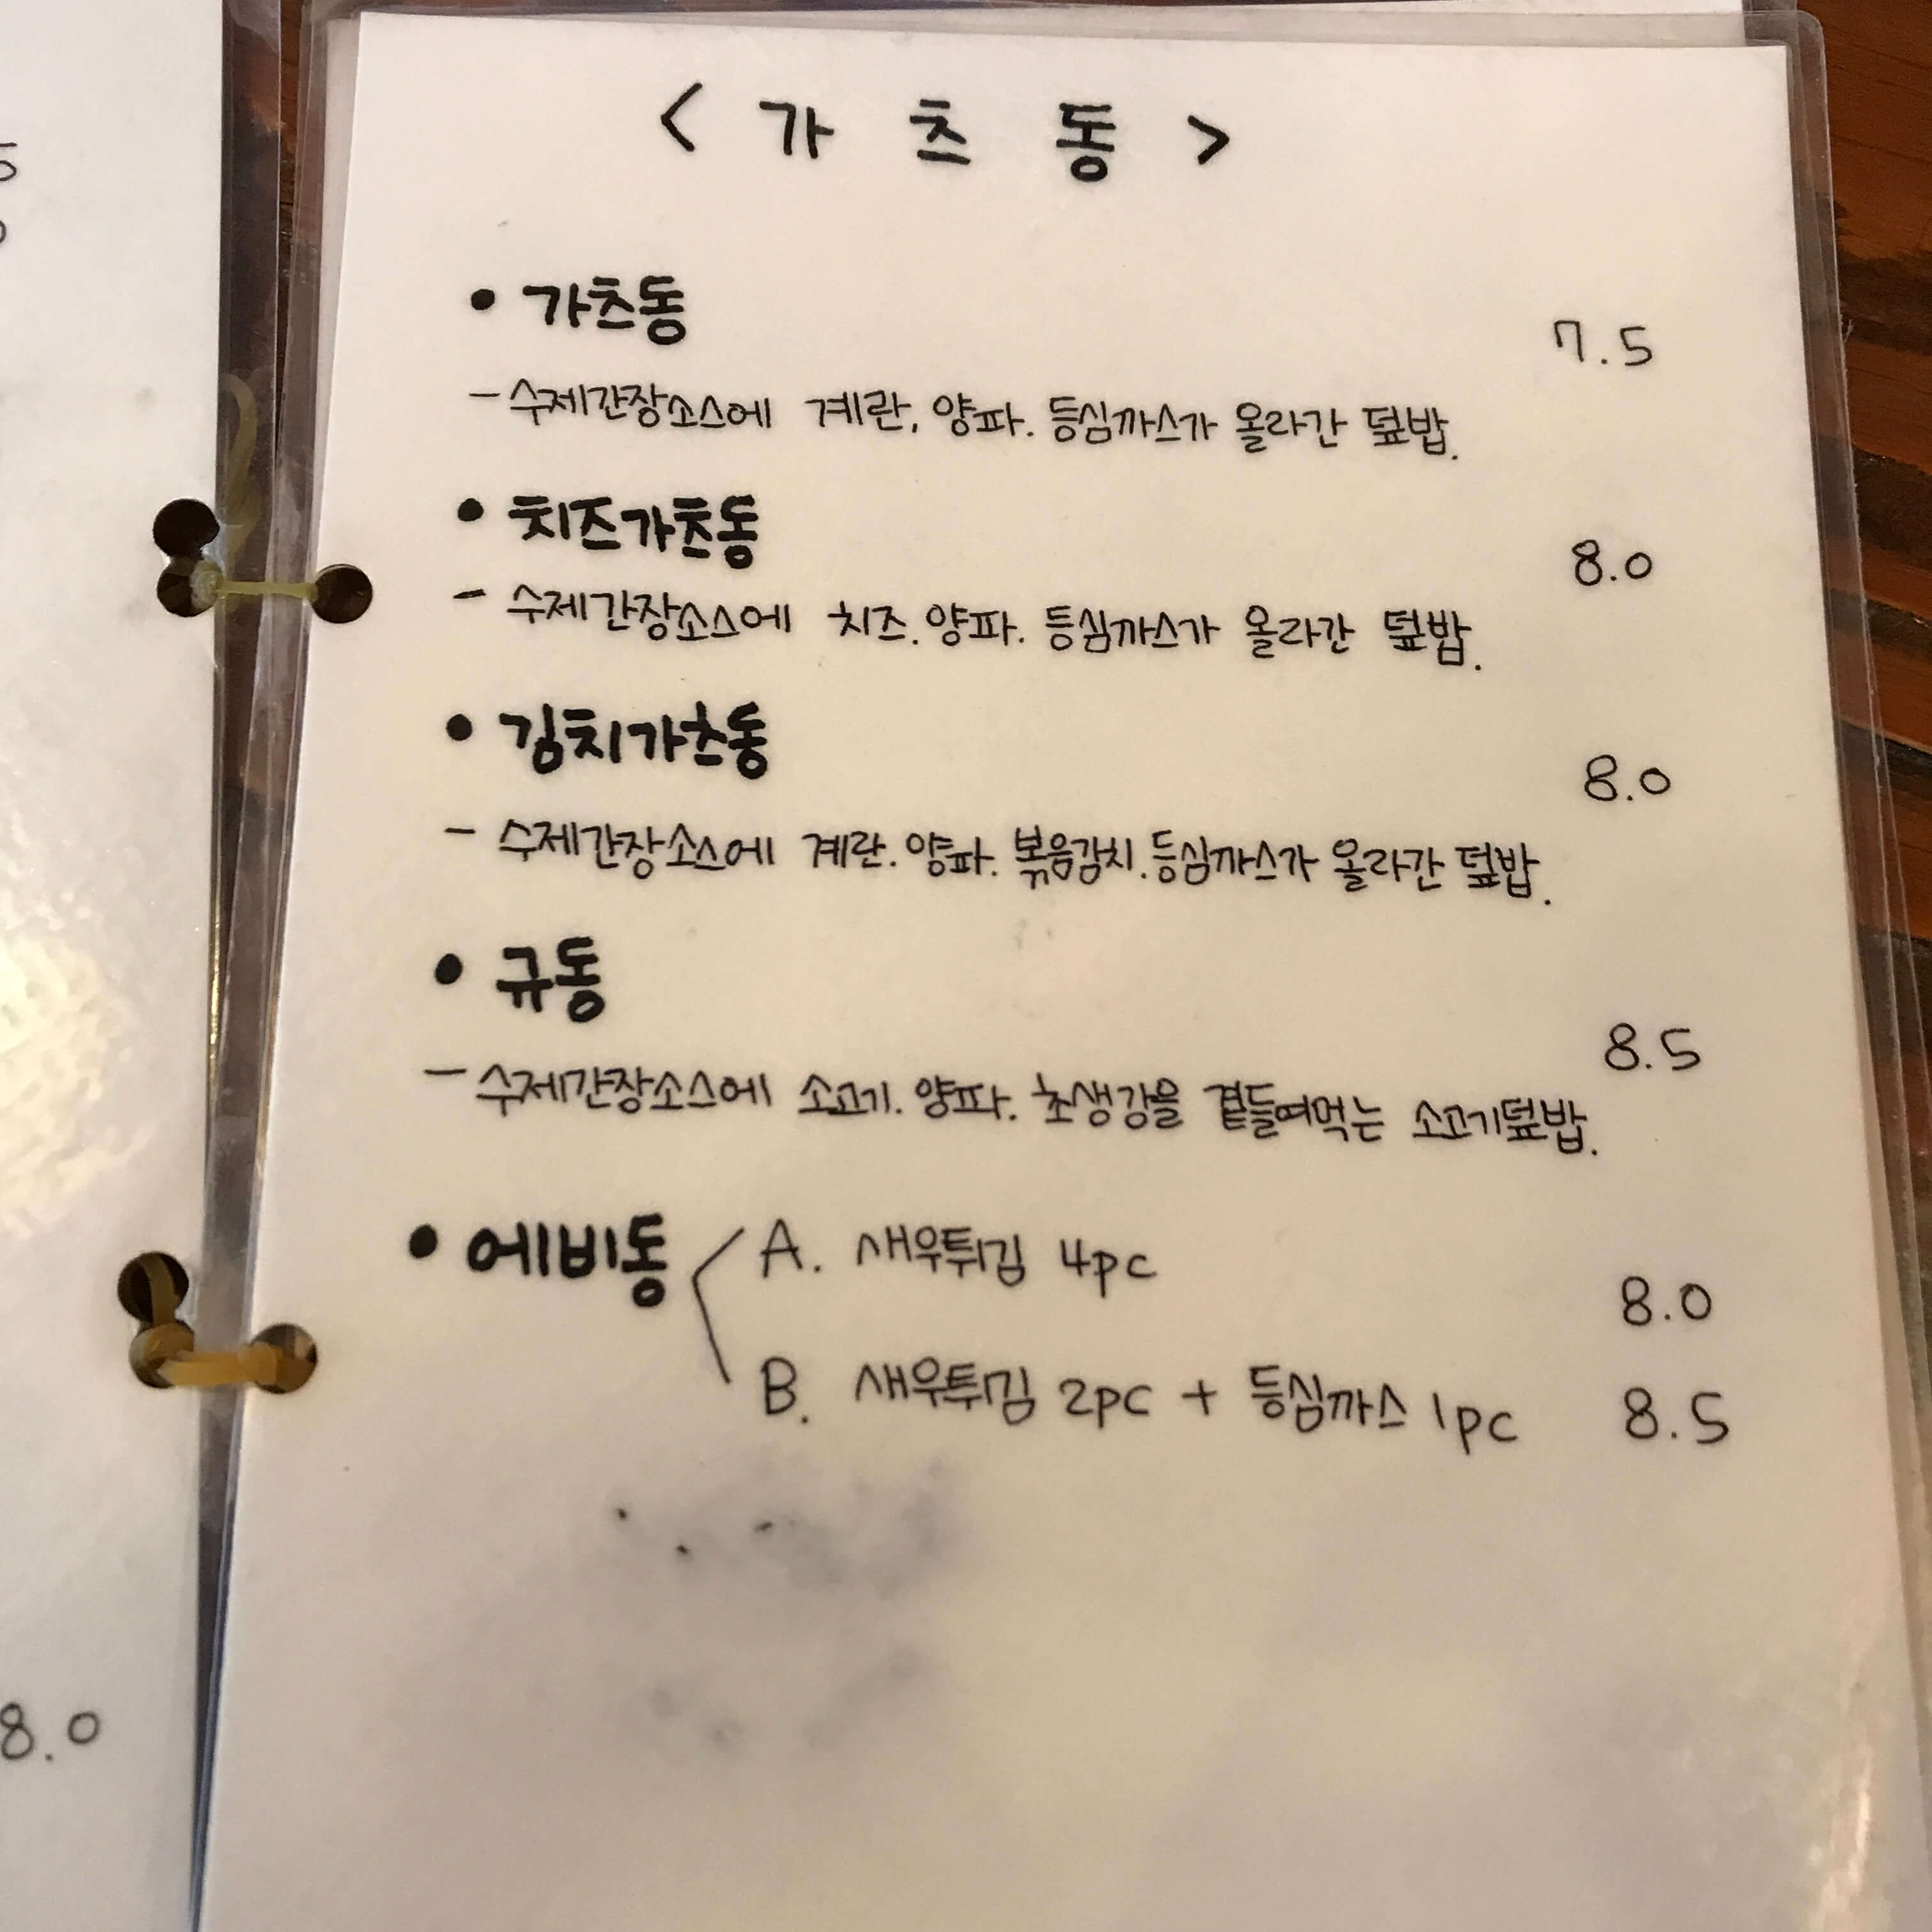 < 가 츠 동 >
• 가츠동 7.5
- 수제간장소스에 계란, 양파. 등심까스가 올라간 덮밥.
• 치즈가츠동 8.0
- 수제간장소스에 치즈. 양파. 등심까스가 올라간 덮밥.
• 김치가츠동 8.0
- 수제간장소스에 계란. 양파. 볶음김치. 등심까스가 올라간 덮밥.
• 규동 8.5
- 수제간장소스에 소고기. 양파. 초생강을 곁들여먹는 소고기덮밥.
• 에비동 A. 새우튀김 4pc 8.0
B. 새우튀김 2pc + 등심까스 1pc 8.5
8.0